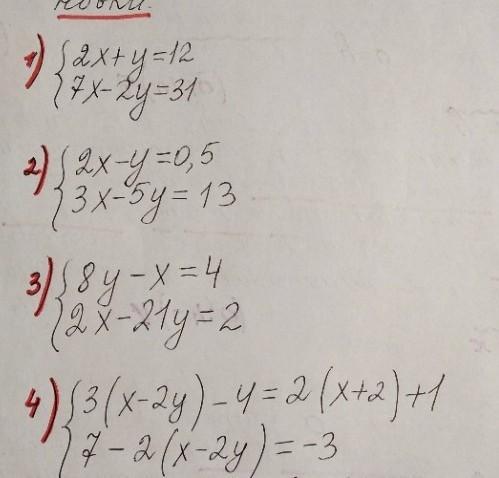 1) { 2x+y=12
7x-2y=31
2) { 2x-y=0,5
3x-5y=13
3) { 8y-x=4
2x-21y=2
4) { 3(x-2y)-4=2(x+2)+1
7-2(x-2y)=-3